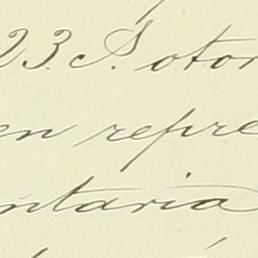 23. S. otor
en repre
ntaria